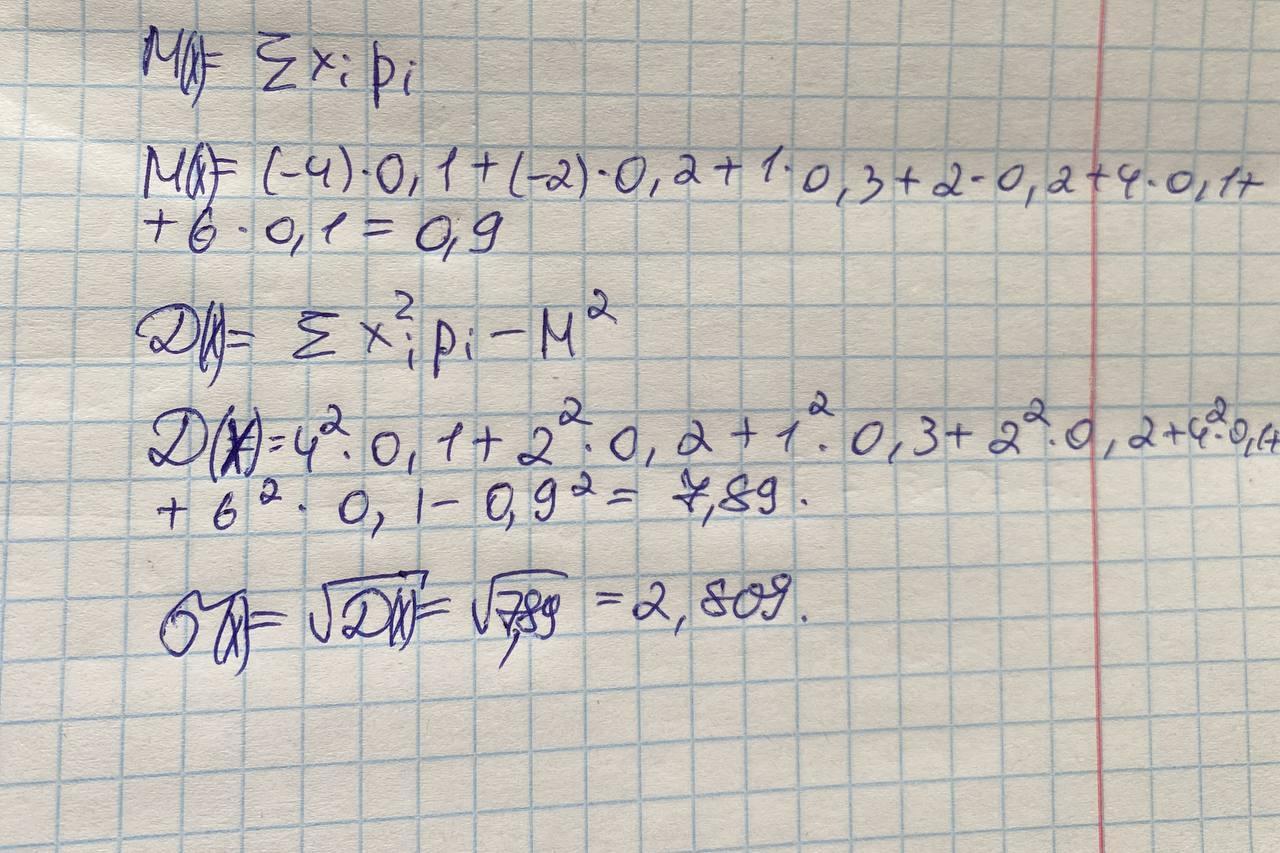 M(x)= Σ xᵢ pᵢ
M(x)= (-4)·0,1+(-2)·0,2+1·0,3+2·0,2+4·0,1+
+6·0,1=0,9
D(x)= Σ xᵢ² pᵢ - M²
D(x)=4²·0,1+2²·0,2+1²·0,3+2²·0,2+4²·0,1+
+6²·0,1-0,9²= 7,89.
σ(x)= √D(x)= √7,89 =2,809.